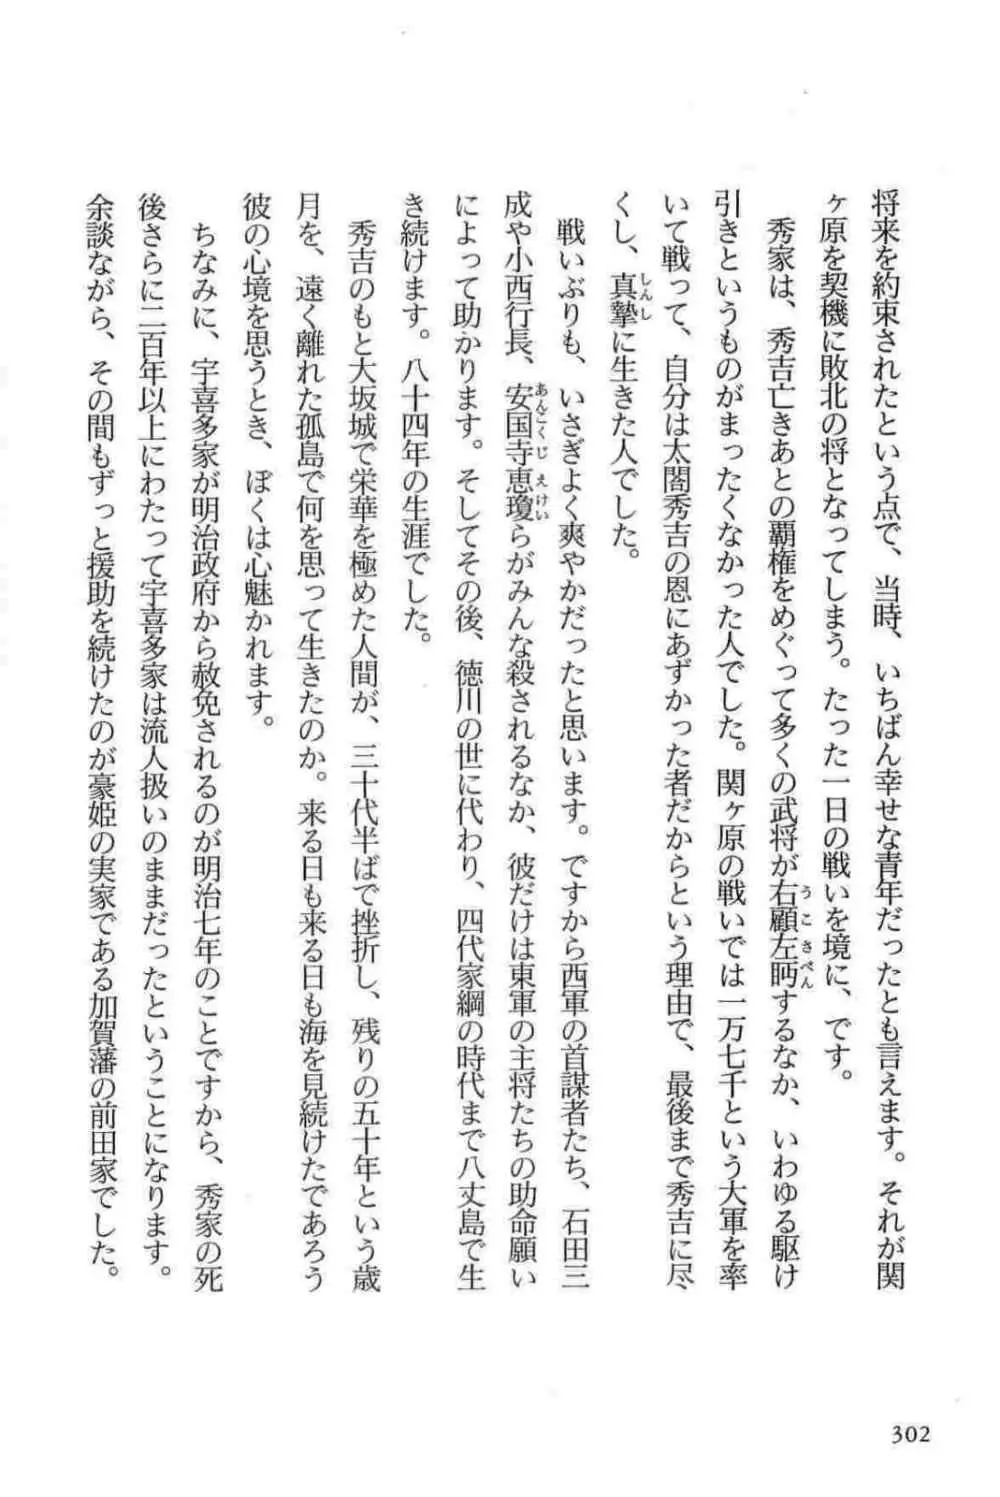 将来を約束されたという点で、当時、いちばん幸せな青年だったとも言えます。それが関
ヶ原を契機に敗北の将となってしまう。たった一日の戦いを境に、です。
秀家は、秀吉亡きあとの覇権をめぐって多くの武将が右顧左眄するなか、いわゆる駆け
うこさべん
引きというものがまったくなかった人でした。関ヶ原の戦いでは一万七千という大軍を率
いて戦って、自分は太閤秀吉の恩にあずかった者だからという理由で、最後まで秀吉に尽
くし、真摯に生きた人でした。
しんし
戦いぶりも、いさぎよく爽やかだったと思います。ですから西軍の首謀者たち、石田三
成や小西行長、安国寺恵瓊らがみんな殺されるなか、彼だけは東軍の主将たちの助命願い
あんこくじえけい
によって助かります。そしてその後、徳川の世に代わり、四代家綱の時代まで八丈島で生
き続けます。八十四年の生涯でした。
秀吉のもと大坂城で栄華を極めた人間が、三十代半ばで挫折し、残りの五十年という歳
月を、遠く離れた孤島で何を思って生きたのか。来る日も来る日も海を見続けたであろう
彼の心境を思うとき、ぼくは心魅かれます。
ちなみに、宇喜多家が明治政府から赦免されるのが明治七年のことですから、秀家の死
後さらに二百年以上にわたって宇喜多家は流人扱いのままだったということになります。
余談ながら、その間もずっと援助を続けたのが豪姫の実家である加賀藩の前田家でした。
302